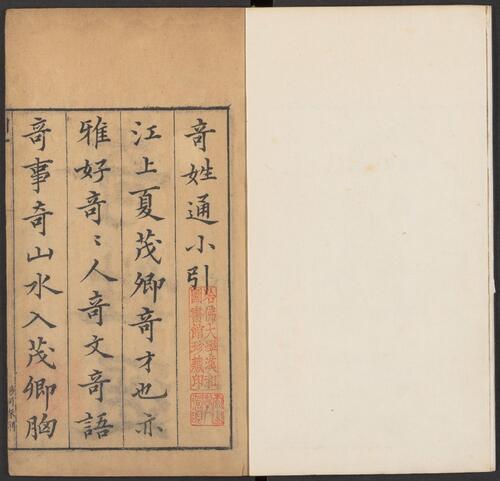 奇姓通小引
江上夏茂卿奇才也亦
雅好奇〻人奇文奇語
奇事奇山水入茂卿胸
哈佛大學漢和
圖書館珍藏印